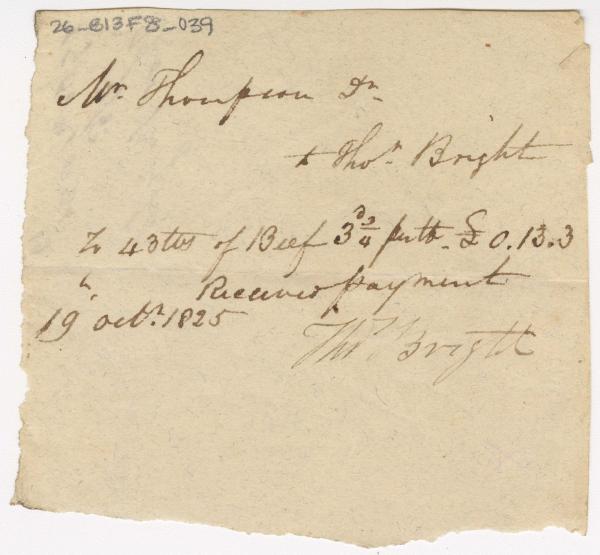 26-B13F8-039
Mr. Thompson Dr.
to Thos. Bright
To 43 lbs of Beef 3d 3/4 pr lb. £ 0.13.3
Received payment
19th Octr. 1825
Thos. Bright